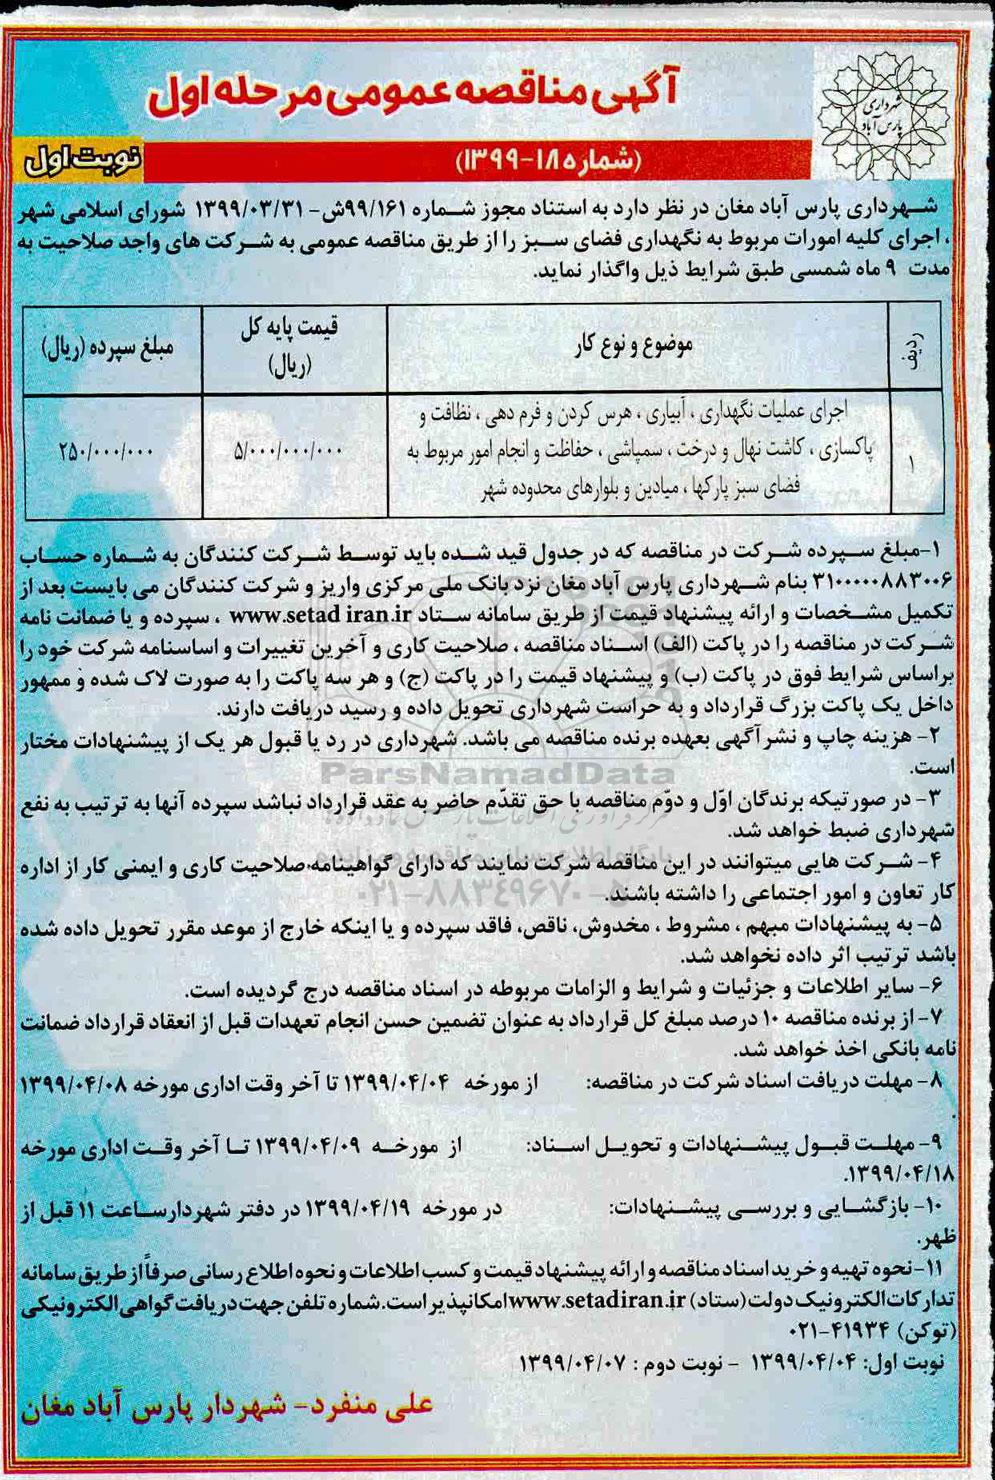 آگهی مناقصه عمومی مرحله اول
شهرداری
پارس آباد
(شماره ۱۸-۱۳۹۹)
نوبت اول
شهرداری پارس آباد مغان در نظر دارد به استناد مجوز شماره ۹۹/۱۶۱ش- ۱۳۹۹/۰۳/۳۱ شورای اسلامی شهر
، اجرای کلیه امورات مربوط به نگهداری فضای سبز را از طریق مناقصه عمومی به شرکت های واجد صلاحیت به
مدت ۹ ماه شمسی طبق شرایط ذیل واگذار نماید.
ردیف
موضوع و نوع کار
قیمت پایه کل
(ریال)
مبلغ سپرده (ریال)
۱
اجرای عملیات نگهداری ، آبیاری ، هرس کردن و فرم دهی ، نظافت و
پاکسازی ، کاشت نهال و درخت ، سمپاشی ، حفاظت و انجام امور مربوط به
فضای سبز پارکها ، میادین و بلوارهای محدوده شهر
۵/۰۰۰/۰۰۰/۰۰۰
۲۵۰/۰۰۰/۰۰۰
۱-مبلغ سپرده شرکت در مناقصه که در جدول قید شده باید توسط شرکت کنندگان به شماره حساب
۳۱۰۰۰۰۰۸۸۳۰۰۶ بنام شهرداری پارس آباد مغان نزد بانک ملی مرکزی واریز و شرکت کنندگان می بایست بعد از
تکمیل مشخصات و ارائه پیشنهاد قیمت از طریق سامانه ستاد www.setad iran.ir ، سپرده و یا ضمانت نامه
شرکت در مناقصه را در پاکت (الف) اسناد مناقصه ، صلاحیت کاری و آخرین تغییرات و اساسنامه شرکت خود را
براساس شرایط فوق در پاکت (ب) و پیشنهاد قیمت را در پاکت (ج) و هر سه پاکت را به صورت لاک شده و ممهور
داخل یک پاکت بزرگ قرارداد و به حراست شهرداری تحویل داده و رسید دریافت دارند.
۲- هزینه چاپ و نشر آگهی بعهده برنده مناقصه می باشد. شهرداری در رد یا قبول هر یک از پیشنهادات مختار
است.
ParsNamadData
۳- در صورتیکه برندگان اوّل و دوّم مناقصه با حق تقدّم حاضر به عقد قرارداد نباشد سپرده آنها به ترتیب به نفع
شهرداری ضبط خواهد شد.
۴- شرکت هایی میتوانند در این مناقصه شرکت نمایند که دارای گواهینامه صلاحیت کاری و ایمنی کار از اداره
کار تعاون و امور اجتماعی را داشته باشند.
۰۲۱-۸۸۳۴۹۶۷۰-۵
۵- به پیشنهادات مبهم ، مشروط ، مخدوش، ناقص، فاقد سپرده و یا اینکه خارج از موعد مقرر تحویل داده شده
باشد ترتیب اثر داده نخواهد شد.
۶- سایر اطلاعات و جزئیات و شرایط و الزامات مربوطه در اسناد مناقصه درج گردیده است.
۷- از برنده مناقصه ۱۰ درصد مبلغ کل قرارداد به عنوان تضمین حسن انجام تعهدات قبل از انعقاد قرارداد ضمانت
نامه بانکی اخذ خواهد شد.
۸- مهلت دریافت اسناد شرکت در مناقصه: از مورخه ۱۳۹۹/۰۴/۰۴ تا آخر وقت اداری مورخه ۱۳۹۹/۰۴/۰۸
.
۹- مهلت قبول پیشنهادات و تحویل اسناد: از مورخه ۱۳۹۹/۰۴/۰۹ تا آخر وقت اداری مورخه
۱۳۹۹/۰۴/۱۸.
۱۰- بازگشایی و بررسی پیشنهادات: در مورخه ۱۳۹۹/۰۴/۱۹ در دفتر شهردار ساعت ۱۱ قبل از
ظهر.
۱۱-نحوه تهیه و خرید اسناد مناقصه و ارائه پیشنهاد قیمت و کسب اطلاعات و نحوه اطلاع رسانی صرفاً از طریق سامانه
تدارکات الکترونیک دولت (ستاد) www.setadiran.ir امکانپذیر است. شماره تلفن جهت دریافت گواهی الکترونیکی
(توکن) ۴۱۹۳۴-۰۲۱
نوبت اول: ۱۳۹۹/۰۴/۰۴ - نوبت دوم : ۱۳۹۹/۰۴/۰۷
علی منفرد- شهردار پارس آباد مغان